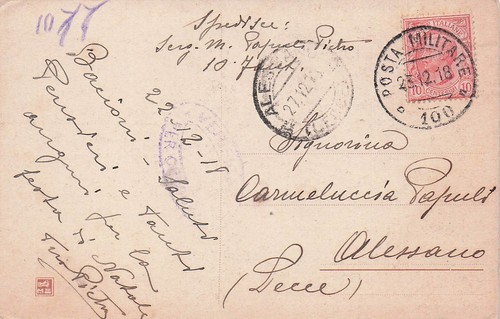 1077
Spedisce:
Serg. M. Papuli Pietro
POSTA MILITARE
23.12.18
100
ALESSANO
27.12.18
(LECCE)
22-12-18
Bacioni - saluti
Pensieri e tanti
auguri per la
festa di Natale
Tuo Pietro
Signorina
Carmeluccia Papuli
Alessano
(Lecce)